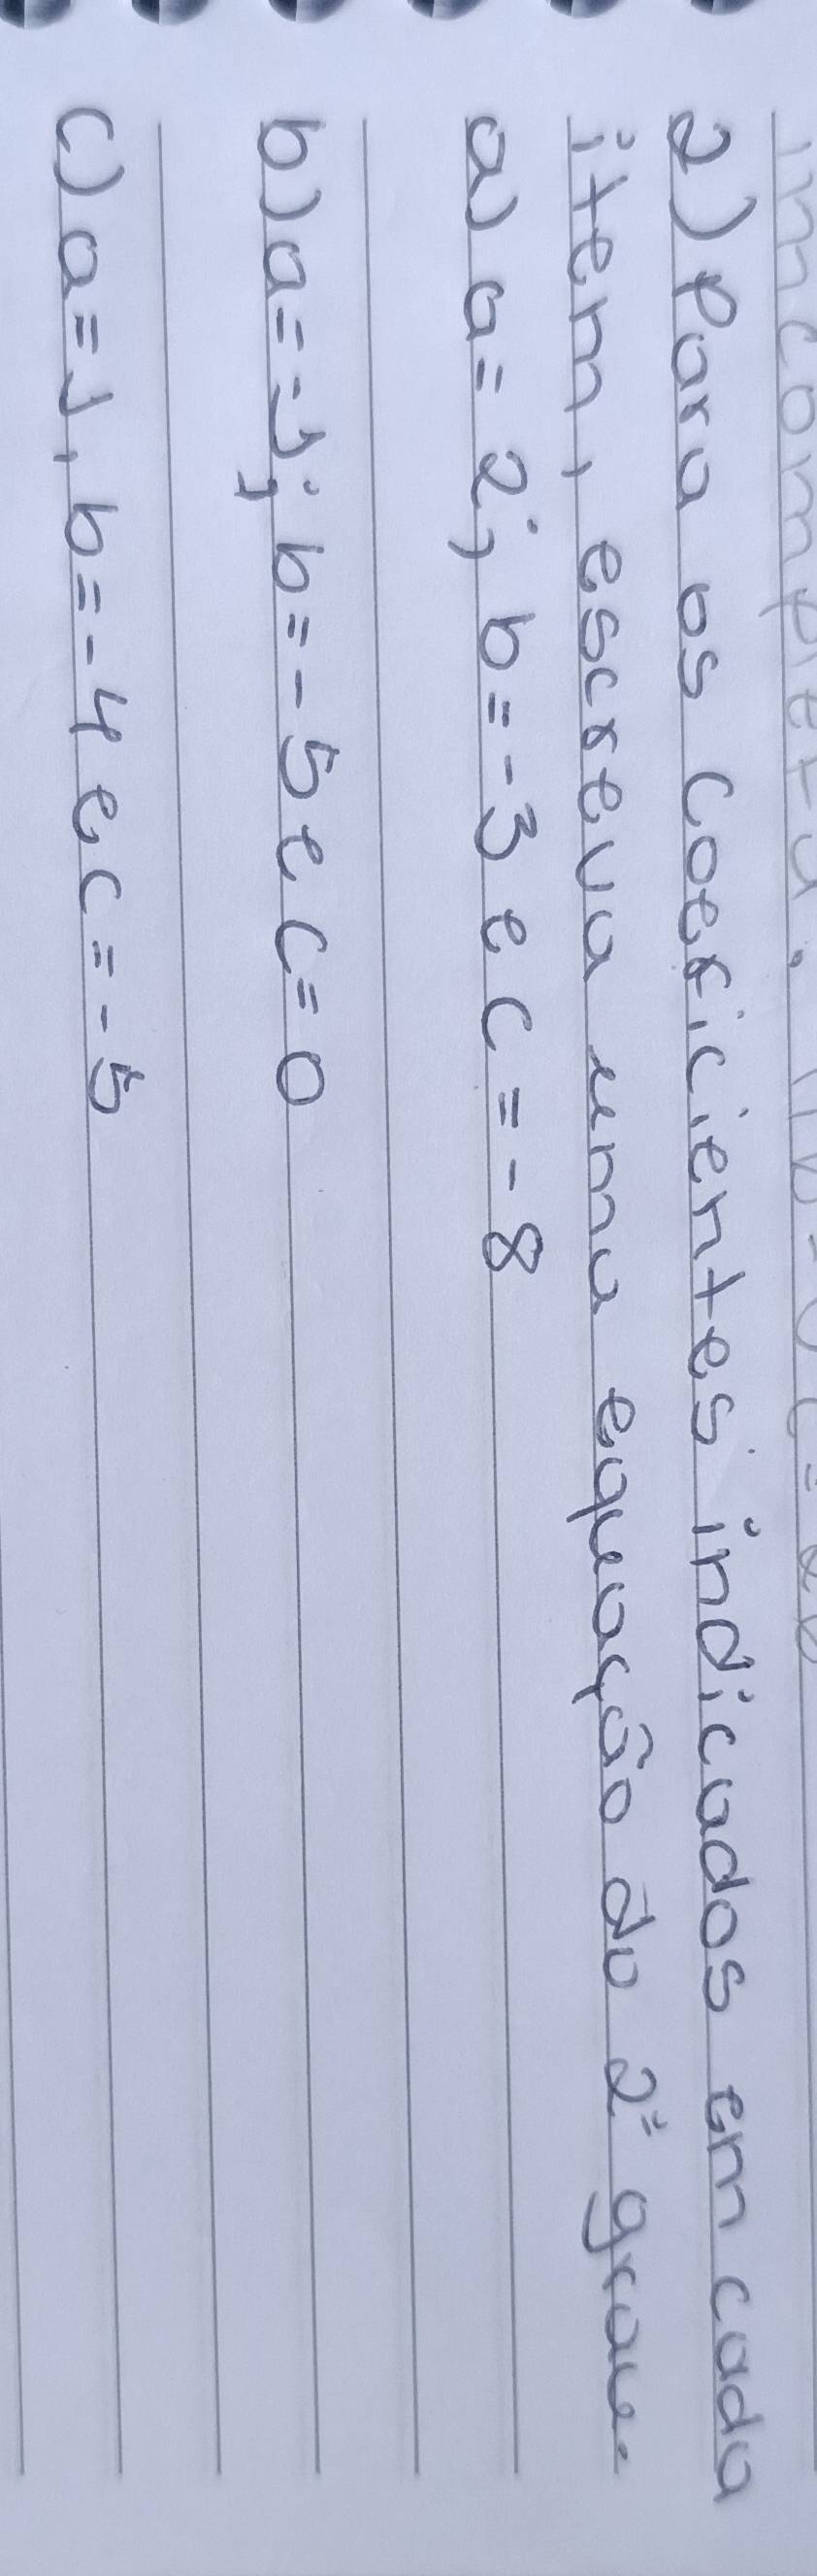 incompleta.
2) Para os coeficientes indicados em cada
item, escreva uma equação do 2º grau.
a) a = 2; b = -3 e c = -8
b) a = -1; b = -5 e c = 0
c) a = 1, b = -4 e c = -5